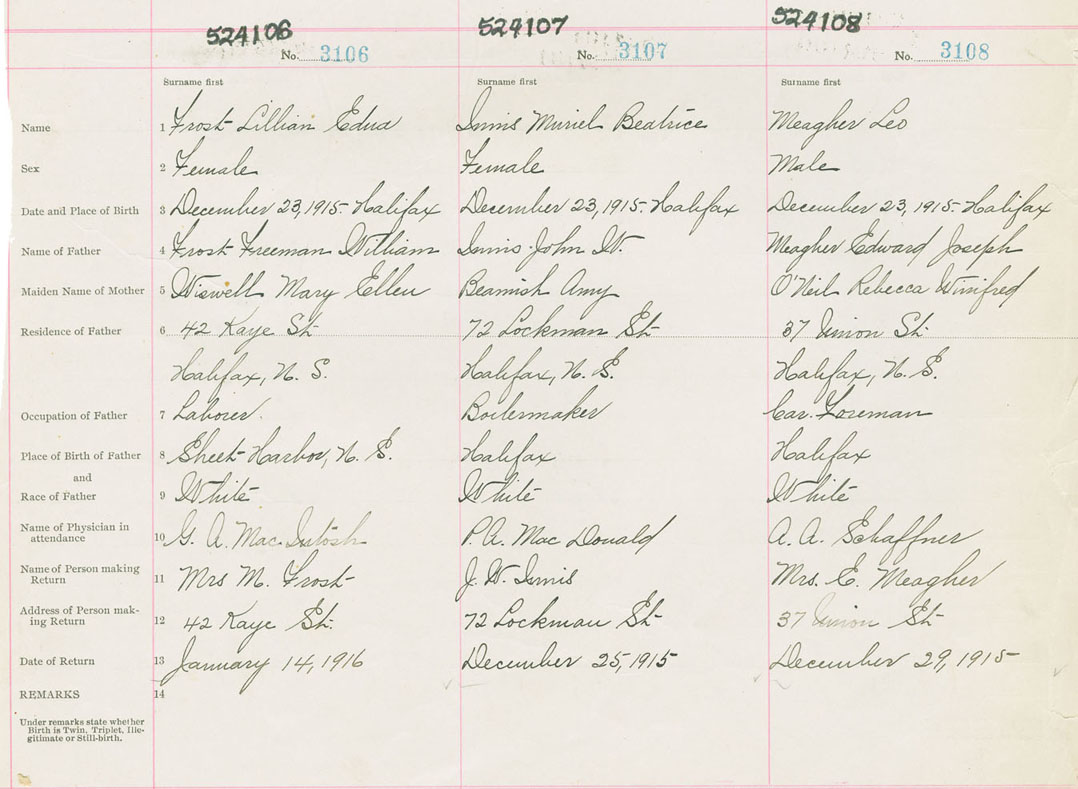 524106 524107 524108
No. 3106 No. 3107 No. 3108
Surname first Surname first Surname first
Name 1 Frost Lillian Edna Innis Muriel Beatrice Meagher Leo
Sex 2 Female Female Male
Date and Place of Birth 3 December 23, 1915 - Halifax December 23, 1915 - Halifax December 23, 1915 - Halifax
Name of Father 4 Frost Freeman William Innis John W. Meagher Edward Joseph
Maiden Name of Mother 5 Wiswell Mary Ellen Beamish Amy O'Neil Rebecca Winifred
Residence of Father 6 42 Kaye St. 72 Lockman St. 37 Union St.
Halifax, N. S. Halifax, N. S. Halifax, N. S.
Occupation of Father 7 Laborer. Boilermaker Car Foreman
Place of Birth of Father 8 Sheet Harbor, N. S. Halifax Halifax
and
Race of Father 9 White White White
Name of Physician in
attendance 10 G. A. Mac Intosh P. A. Mac Donald A. A. Schaffner
Name of Person making
Return 11 Mrs M. Frost J. W. Innis Mrs. E. Meagher
Address of Person mak-
ing Return 12 42 Kaye St. 72 Lockman St. 37 Union St.
Date of Return 13 January 14, 1916 December 25, 1915 December 29, 1915
REMARKS 14
Under remarks state whether
Birth is Twin, Triplet, Ille-
gitimate or Still-birth.